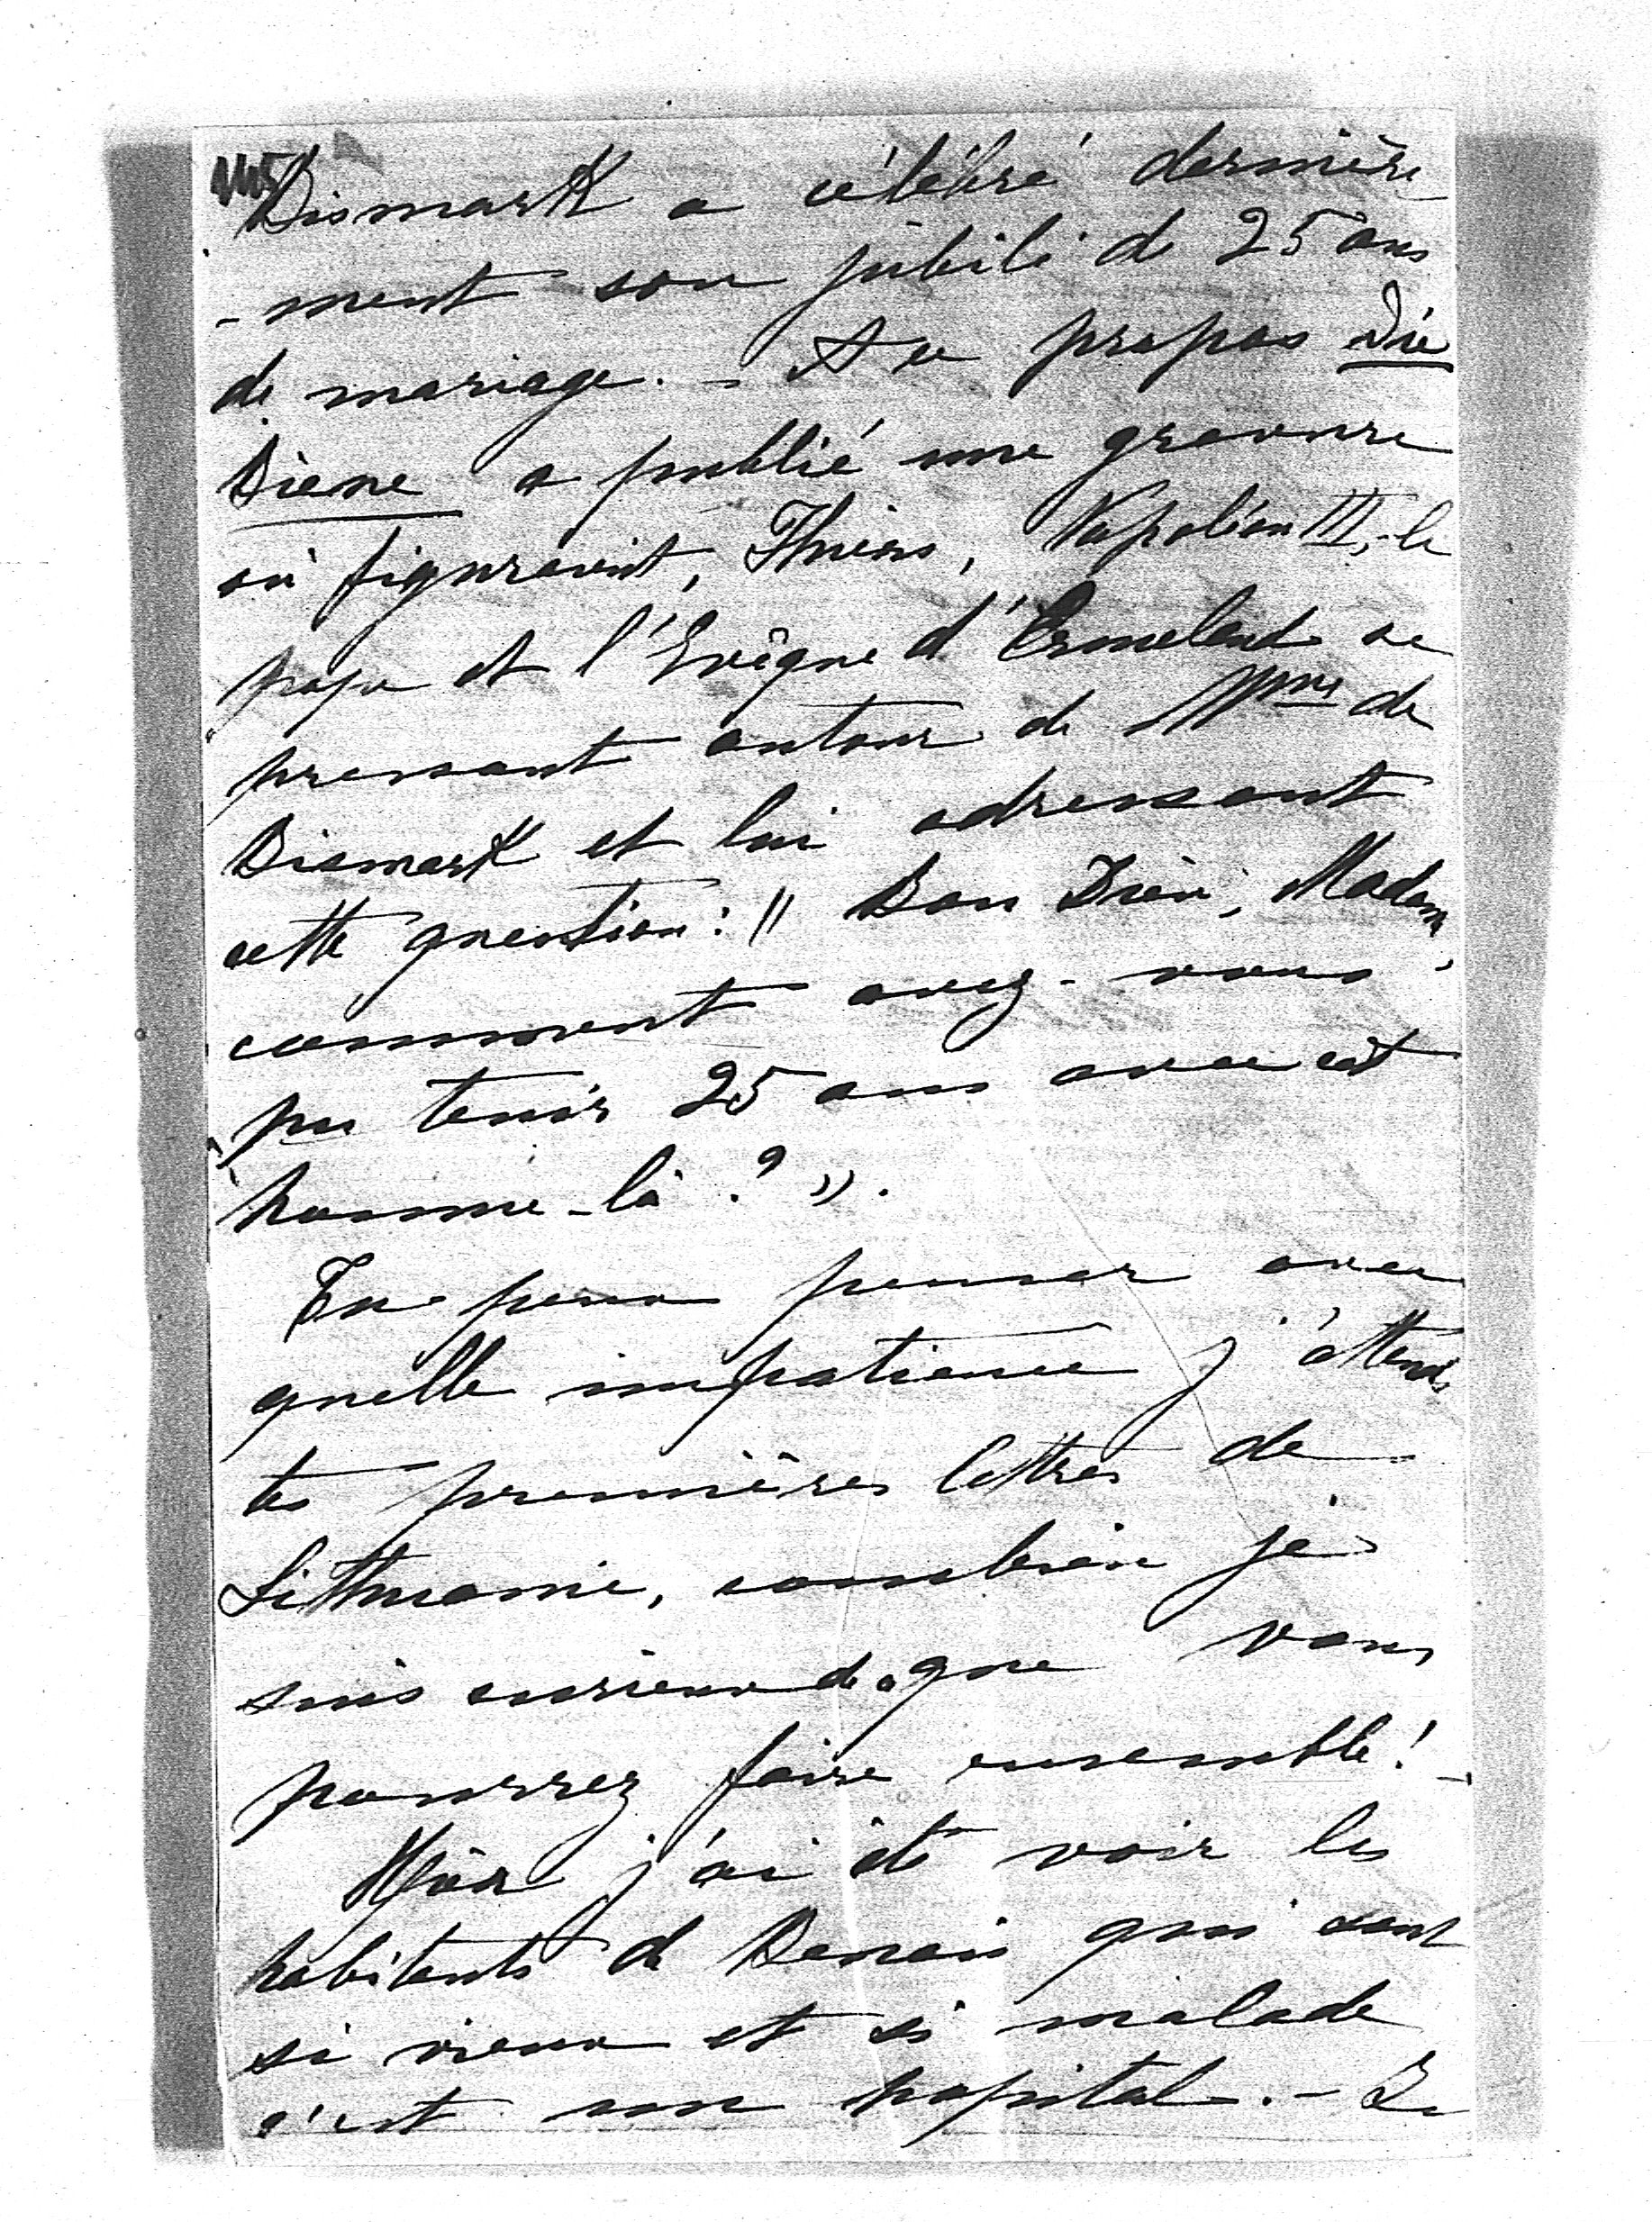 145
Bismark a célébré dernière
-ment son jubilé de 25 ans
de mariage. - A ce propos Die
Biene a publié une gravure
où figuraient, Thiers, Napoléon III, le
pape et l'Evêque d'Ermeland se
pressant autour de Mme de
Bismark et lui adressant
cette question: " Bon Dieu, Madame,
comment avez-vous
pu tenir 25 ans avec cet
homme-là ? ».
Tu peux penser avec
quelle impatience j'attends
tes premières lettres de
Lithuanie, combien je
suis curieux de que vous
pourrez faire ensemble! -
Hier j'ai été voir les
habitants de qui sont
si vieux et si malade
c'est un hopital. - Le